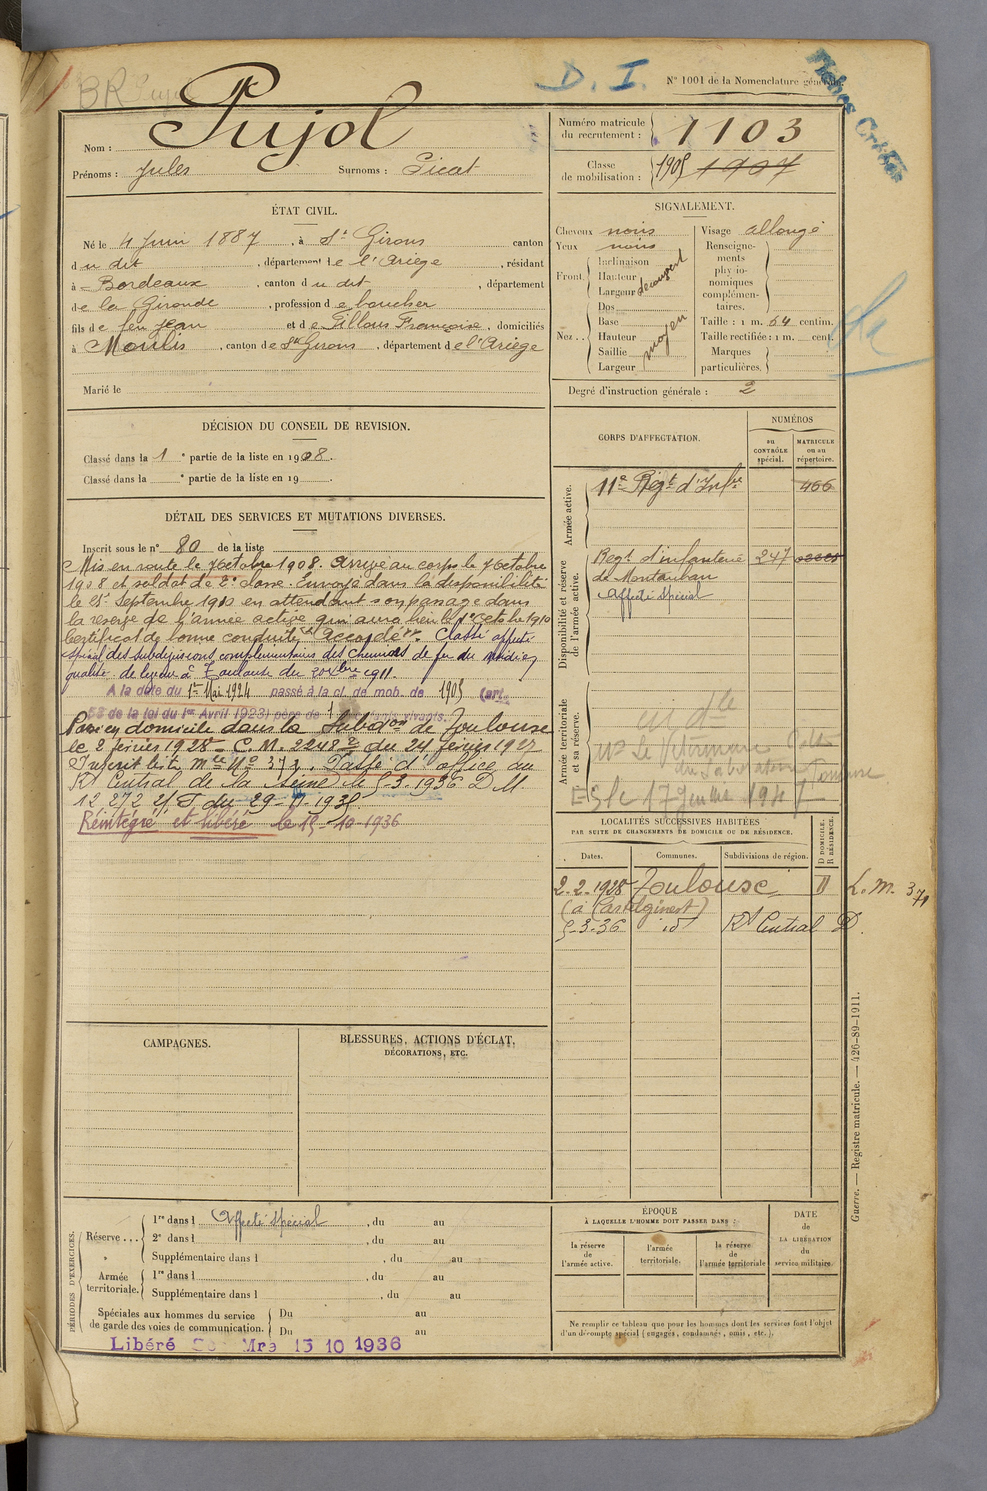 BR Pujol
D. I.
N° 1001 de la Nomenclature générale
Fiches Créées
Nom : Pujol
Prénoms : Jules Surnoms : Picat
Numéro matricule du recrutement : 1103
Classe de mobilisation : 1905 1907
ÉTAT CIVIL.
Né le 4 Juin 1887, à St Girons canton
du dit, département de l'Ariège, résidant
à Bordeaux, canton du dit, département
de la Gironde, profession de boucher
fils de feu Jean et de Pillous Françoise, domiciliés
à Moulis, canton de St Girons, département de l'Ariège
Marié le
SIGNALEMENT.
Cheveux noirs
Yeux noirs
Front. Inclinaison
Hauteur
Largeur découvert
Nez.. Dos
Base
Hauteur moyen
Saillie
Largeur
Visage allongé
Renseignements physionomiques complémentaires.
Taille : 1 m. 64 centim.
Taille rectifiée : 1 m. cent.
Marques particulières.
Degré d'instruction générale : 2
DÉCISION DU CONSEIL DE REVISION.
Classé dans la 1e partie de la liste en 1908.
Classé dans la e partie de la liste en 19 .
DÉTAIL DES SERVICES ET MUTATIONS DIVERSES.
Inscrit sous le n° 80 de la liste
Mis en route le 7 Octobre 1908. Arrivé au corps le 7 Octobre
1908 et soldat de 2e classe. Envoyé dans la disponibilité
le 25 Septembre 1910 en attendant son passage dans
la réserve de l'armée active qui aura lieu le 1er Octobre 1910
Certificat de bonne conduite accordé. Classé affecté
spécial des subdivisions complémentaires des chemins de fer du Midi en
qualité de
Toulouse du 20 Xbre 1911.
A la date du 1er Mai 1924 passé à la cl. de mob. de 1905 (art.
58 de la loi du 1er Avril 1923) père de 1 enfants vivants.
Passé en domicile dans la Subdon de Toulouse
le 2 février 1928 - C. M. 2248 du 24 février 1927
Inscrit liste mle No 373. Passé d'office au
Rt Central de la Seine le 5-3-1936 D. M.
12 272 du 29-11-1935
Réintégré et libéré le 15-10-1936
CORPS D'AFFECTATION.
NUMÉROS
au CONTRÔLE spécial.
MATRICULE ou au répertoire.
Armée active.
11e Régt d'Infrie 466
Disponibilité et réserve de l'armée active.
Regt d'infanterie 247
de Montauban
Affecté Spécial
Armée territoriale et sa réserve.
Le Vétérinaire
du Laboratoire Toulouse
le 17 Juillet 1917
LOCALITÉS SUCCESSIVES HABITÉES
PAR SUITE DE CHANGEMENTS DE DOMICILE OU DE RÉSIDENCE.
Dates. Communes. Subdivisions de région. D DOMICILE. R RÉSIDENCE.
2-2-1928 Toulouse D L. M. 373
(à Castelginest)
5-3-36 id Rt Central D.
CAMPAGNES.
BLESSURES, ACTIONS D'ÉCLAT,
DÉCORATIONS, ETC.
PÉRIODES D'EXERCICES.
Réserve... 1re dans l Affecté Spécial, du au
2e dans l , du au
Supplémentaire dans l , du au
Armée territoriale. 1re dans l , du au
Supplémentaire dans l , du au
Spéciales aux hommes du service de garde des voies de communication. Du au
Du au
Libéré Mre 15 10 1936
ÉPOQUE
À LAQUELLE L'HOMME DOIT PASSER DANS :
la réserve de l'armée active.
l'armée territoriale.
la réserve de l'armée territoriale
DATE de LA LIBÉRATION du service militaire.
Ne remplir ce tableau que pour les hommes dont les services font l'objet
d'un décompte spécial (engagés, condamnés, omis, etc.).
Guerre. — Registre matricule. — 426-89-1911.